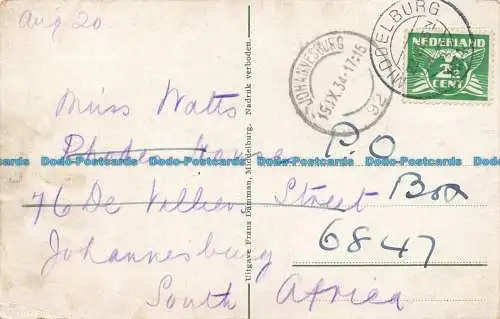 Aug 20
MIDDELBURG
NEDERLAND
2½
CENT
JOHANNESBURG
15.IX.34-17:15
92
Miss Watts
P.O
Box
6847
76 De Villiers Street
Johannesburg
South Africa
Uitgave Franz Damman, Middelburg. Nadruk verboden.
Dodo-Postcards Dodo-Postcards Dodo-Postcards Dodo-Postcards Dodo-Postcards Dodo-Postcards